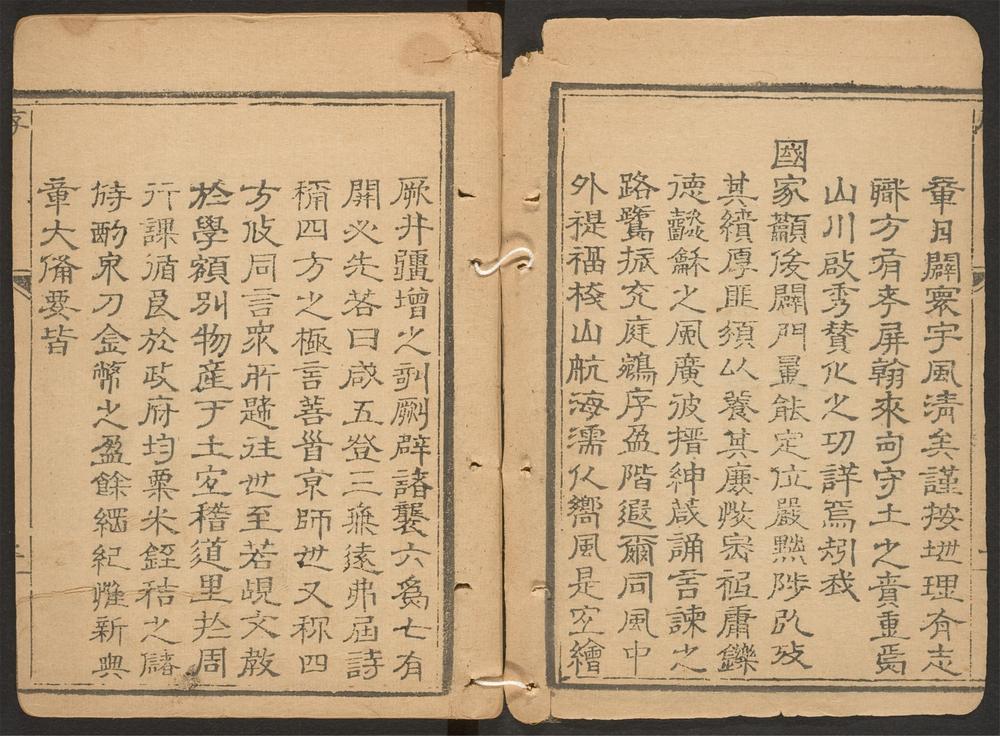 章日闢寰宇風清矣謹按地理有志
職方有考屏翰來旬守土之責重焉
山川啟秀贊化之功詳焉矧我
國家籲俊闢門量能定位嚴黜陟以攷
其績厚匪頒以養其廉庸鑠
德懿龢之風廣彼搢紳葴誦言諫之
路鷺振充庭鵷序盈階遐爾同風中
外禔福棧山航海濡化嚮風是宜繪
厥井疆增之剞劂辟諸襲六為七有
開必先若曰咸五登三無遠弗屆詩
稱四方之極言善首京師也又称四
方攸同言衆所趨往也至若覘文教
於學額別物産于土宜稽道里於周
行課循良於政府均粟米銍秸之儲
酌泉刀金幣之盈餘綱紀惟新典
章大備要皆
序
二